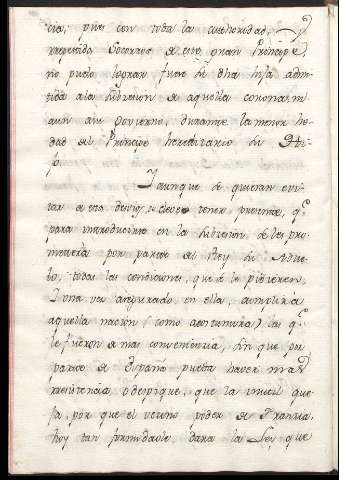 cia, pues con toda la authoridad, y
repetidos Socorros de este gran Principe,
no pudo lograr fuese su dha hija admi-
tida a la subcesion de aquella corona, ni
aun al govierno, durante la menor he-
dad del Principe hereditario su Hi-
jo.
Y aunque se quieran evi-
tar a este devio, se deve tener presente, q.e
para introducirse en la subcesion, se les pro-
metera por parte del Rey de
todas las condiciones, que se le pidieren,
Y una vez asegurado en ella, cumplirá
aquella nacion (como acostumbra) las q.e
le fueren de mas conveniencia, sin que por
parte de España pueda haver mas
resistencia o despique, que la inutil que-
ja, por que el vecino poder de Francia,
hoy tan formidable dara la Ley que